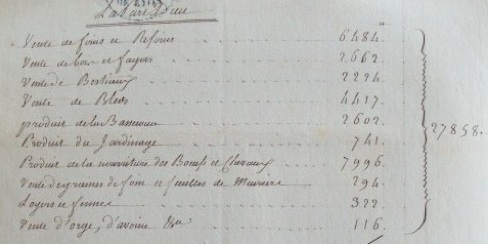 La Part Dieu
Vente de foins et Refoins 6484.
Vente de bois et fagots 2662.
Vente de Bestiaux 2224.
Vente de Bleds 4417.
produit de la 2602.
Produit du Jardinage 741.
Produit de la nourriture des Boeufs et Chevaux 7996.
Vente de graines de foin et feuilles de Meurier 294.
Loyers et fermes 322.
Vente d'orge, d'avoine &a 116.
27858.